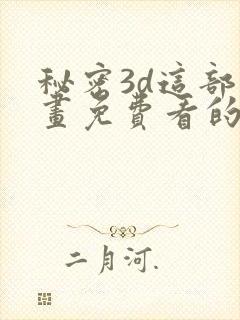 秘密3d這部
畫免費看的
二月河.